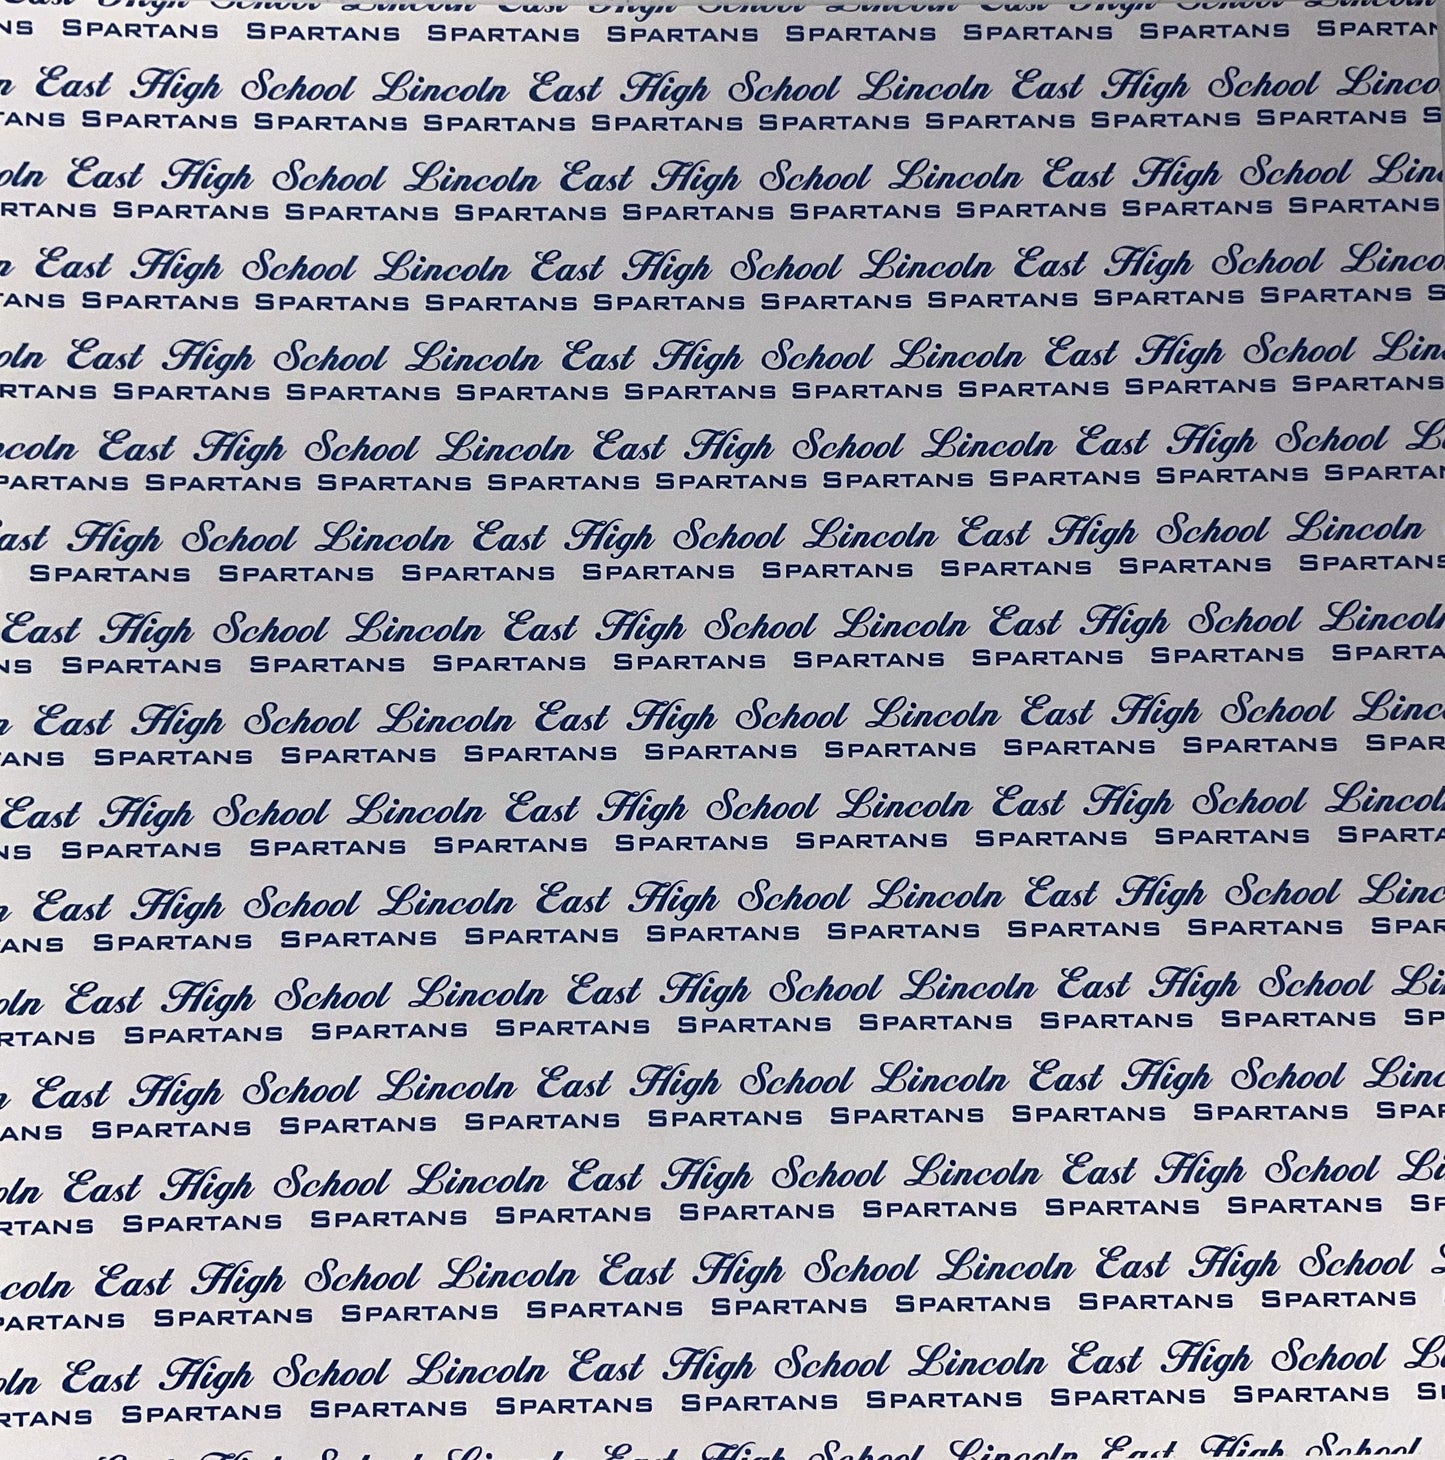 East High School Lincoln East High School Lincoln East High School Lincoln
NS SPARTANS SPARTANS SPARTANS SPARTANS SPARTANS SPARTANS SPARTANS SPARTAN
n East High School Lincoln East High School Lincoln East High School Linco
TANS SPARTANS SPARTANS SPARTANS SPARTANS SPARTANS SPARTANS SPARTANS SPARTANS S
oln East High School Lincoln East High School Lincoln East High School Lin
RTANS SPARTANS SPARTANS SPARTANS SPARTANS SPARTANS SPARTANS SPARTANS SPARTANS
n East High School Lincoln East High School Lincoln East High School Linco
TANS SPARTANS SPARTANS SPARTANS SPARTANS SPARTANS SPARTANS SPARTANS SPARTANS S
oln East High School Lincoln East High School Lincoln East High School Lin
RTANS SPARTANS SPARTANS SPARTANS SPARTANS SPARTANS SPARTANS SPARTANS SPARTANS
ncoln East High School Lincoln East High School Lincoln East High School L
PARTANS SPARTANS SPARTANS SPARTANS SPARTANS SPARTANS SPARTANS SPARTANS SPARTAN
ast High School Lincoln East High School Lincoln East High School Lincoln
SPARTANS SPARTANS SPARTANS SPARTANS SPARTANS SPARTANS SPARTANS SPARTANS
East High School Lincoln East High School Lincoln East High School Lincoln
NS SPARTANS SPARTANS SPARTANS SPARTANS SPARTANS SPARTANS SPARTANS SPARTA
n East High School Lincoln East High School Lincoln East High School Linc
ANS SPARTANS SPARTANS SPARTANS SPARTANS SPARTANS SPARTANS SPARTANS SPAR
East High School Lincoln East High School Lincoln East High School Lincoln
NS SPARTANS SPARTANS SPARTANS SPARTANS SPARTANS SPARTANS SPARTANS SPARTA
n East High School Lincoln East High School Lincoln East High School Linc
ANS SPARTANS SPARTANS SPARTANS SPARTANS SPARTANS SPARTANS SPARTANS SPAR
oln East High School Lincoln East High School Lincoln East High School Li
RTANS SPARTANS SPARTANS SPARTANS SPARTANS SPARTANS SPARTANS SPARTANS SP
n East High School Lincoln East High School Lincoln East High School Linc
ANS SPARTANS SPARTANS SPARTANS SPARTANS SPARTANS SPARTANS SPARTANS SPAR
oln East High School Lincoln East High School Lincoln East High School Li
RTANS SPARTANS SPARTANS SPARTANS SPARTANS SPARTANS SPARTANS SPARTANS SP
coln East High School Lincoln East High School Lincoln East High School L
PARTANS SPARTANS SPARTANS SPARTANS SPARTANS SPARTANS SPARTANS SPARTANS
oln East High School Lincoln East High School Lincoln East High School Li
RTANS SPARTANS SPARTANS SPARTANS SPARTANS SPARTANS SPARTANS SPARTANS S
East High School Lincoln East High School Lincoln East High School